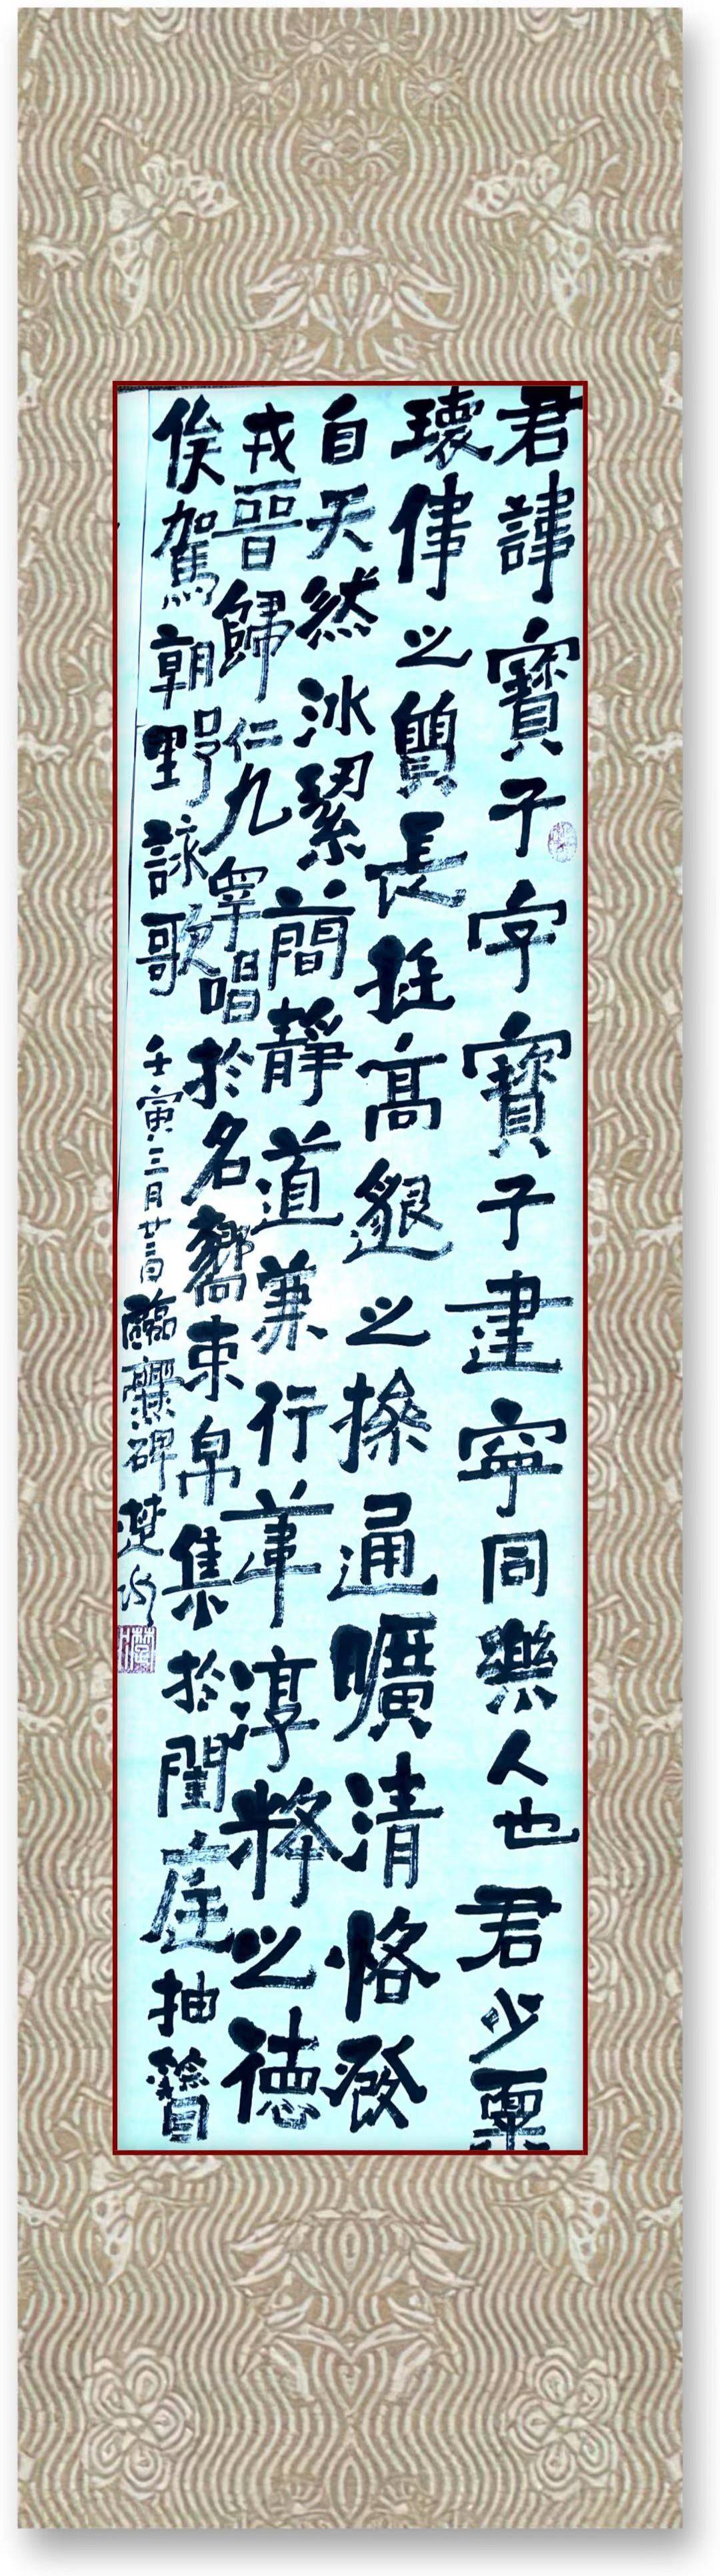 君諱寶子字寶子建寧同樂人也君少稟
瓌偉之質長挺高邈之操通曠清恪發
自天然冰絜簡靜道兼行葦淳粹之德
戎晉歸仁九睪唱於名嚮束帛集於閨庭抽簪
俟駕朝野詠歌
壬寅三月廿三日臨爨碑